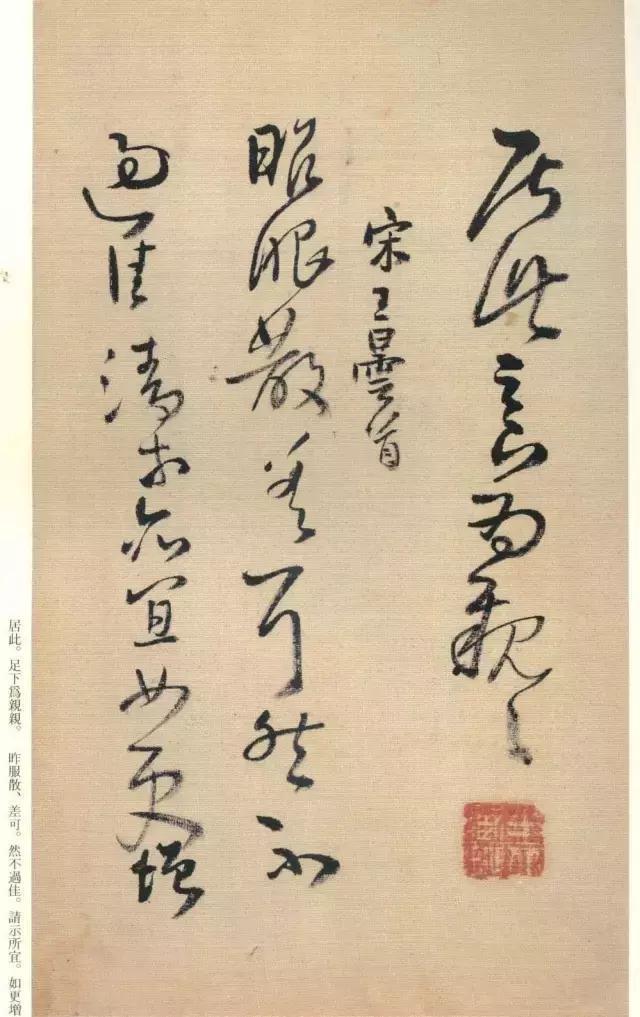 居此言為親〻
宋王曇首
昨服散差可然不
過佳請示所宜如更增
居此。足下為親親。 昨服散、差可。然不過佳。請示所宜。如更增